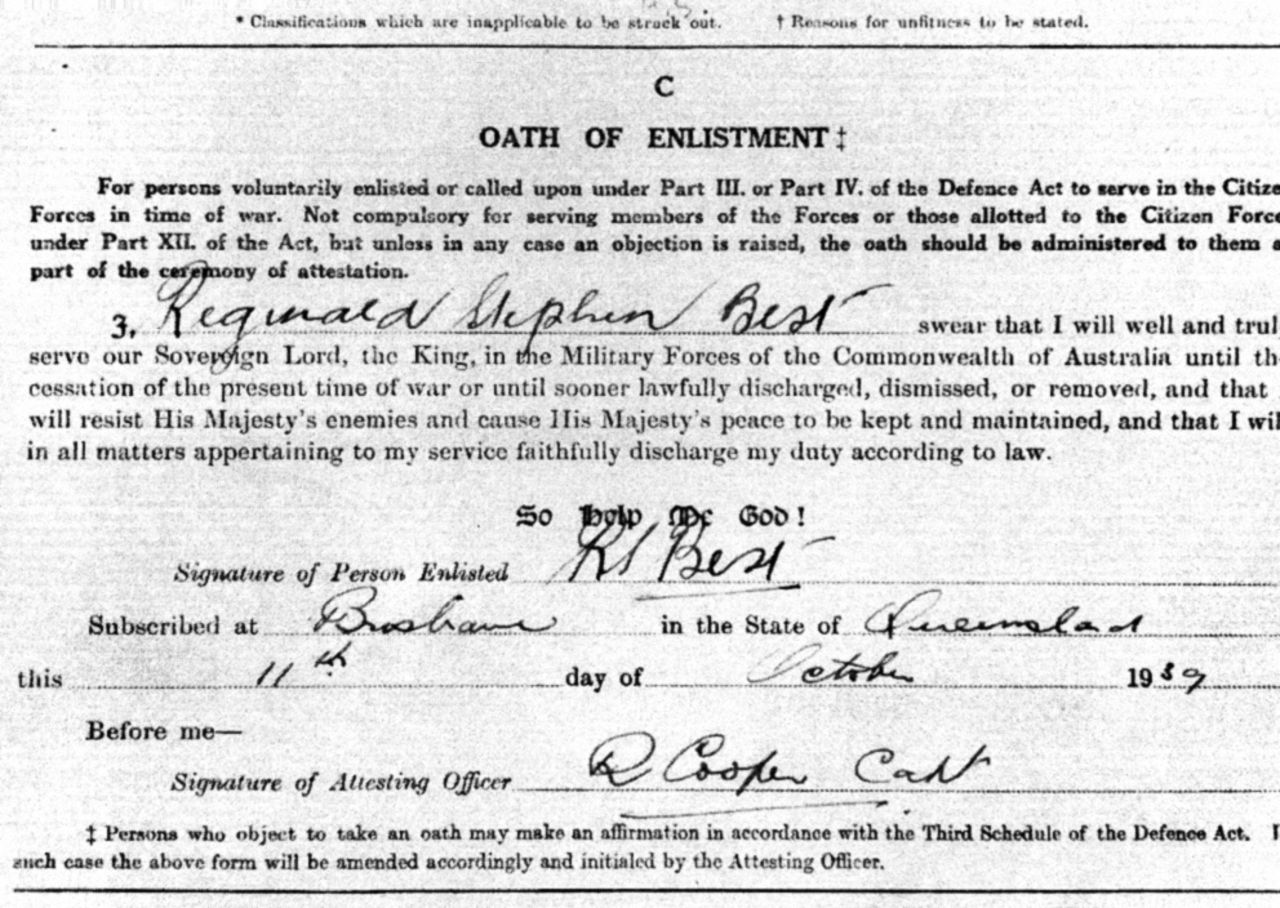 * Classifications which are inapplicable to be struck out. † Reasons for unfitness to be stated.
C
OATH OF ENLISTMENT ‡
For persons voluntarily enlisted or called upon under Part III. or Part IV. of the Defence Act to serve in the Citize
Forces in time of war. Not compulsory for serving members of the Forces or those allotted to the Citizen Force
under Part XII. of the Act, but unless in any case an objection is raised, the oath should be administered to them a
part of the ceremony of attestation.
3, Reginald Stephen Best swear that I will well and trul
serve our Sovereign Lord, the King, in the Military Forces of the Commonwealth of Australia until th
cessation of the present time of war or until sooner lawfully discharged, dismissed, or removed, and that
will resist His Majesty's enemies and cause His Majesty's peace to be kept and maintained, and that I wil
in all matters appertaining to my service faithfully discharge my duty according to law.
So Help Me God!
Signature of Person Enlisted RS Best
Subscribed at Brisbane in the State of Queensland
this 11th day of October 1939
Before me—
Signature of Attesting Officer R Cooper Capt
‡ Persons who object to take an oath may make an affirmation in accordance with the Third Schedule of the Defence Act. I
such case the above form will be amended accordingly and initialed by the Attesting Officer.